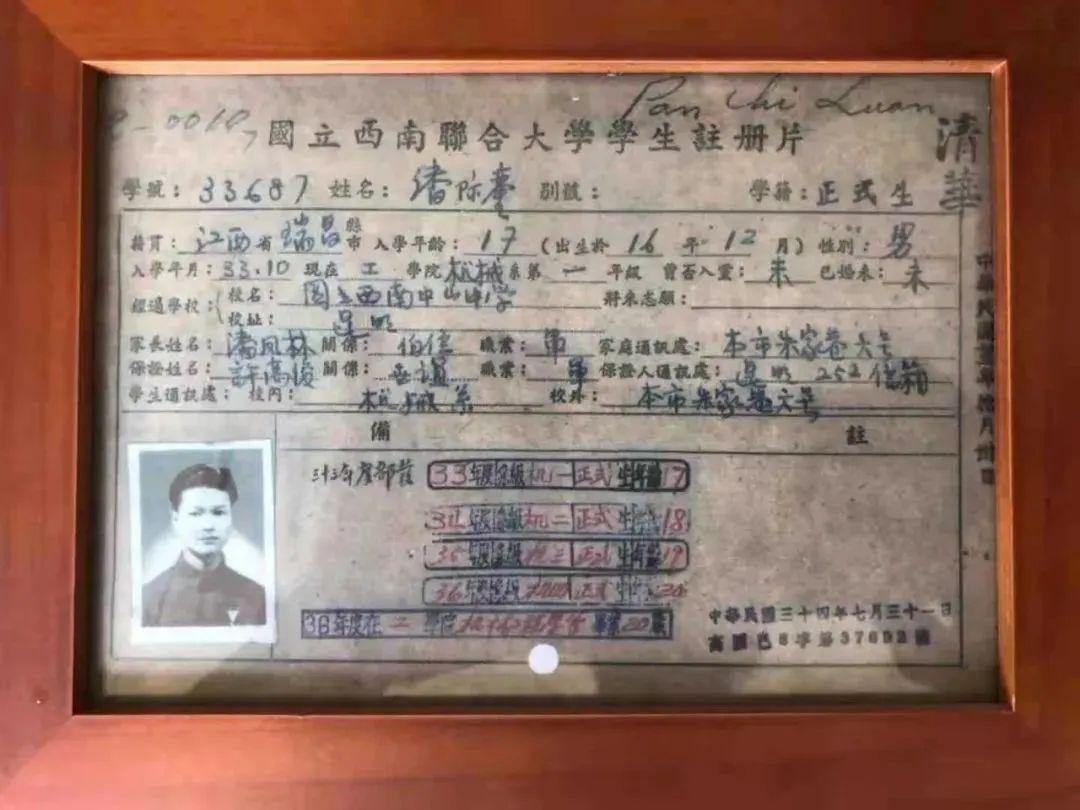 Pan Chi Luan
國立西南聯合大學學生註册片
清華
學號：33687 姓名：潘際鑾 別號： 學籍：正式生
籍貫：江西省瑞昌縣市 入學年齡：17（出生於16年12月）性別：男
入學年月：33.10 現在工學院机械系第一年級 曾否入黨：未 已婚未：未
經過學校：校名：國立西南中山中學 將來志願：
校址：昆明
家長姓名：潘鳳林 關係：伯侄 職業：軍 家庭通訊處：本市朱家巷六号
保證姓名：許高俊 關係：世誼 職業：軍 保證人通訊處：昆明252信箱
學生通訊處：校內：机械系 校外：本市朱家巷六号
備註
33年度 級机一正式生年齡17
34年度 級机二正式生 18
35年度 級机三正式生年齡19
36年度 級机四正式生 20
36年度在工學院机 系 畢業
中華民國三十四年七月三十一日
字第37692號